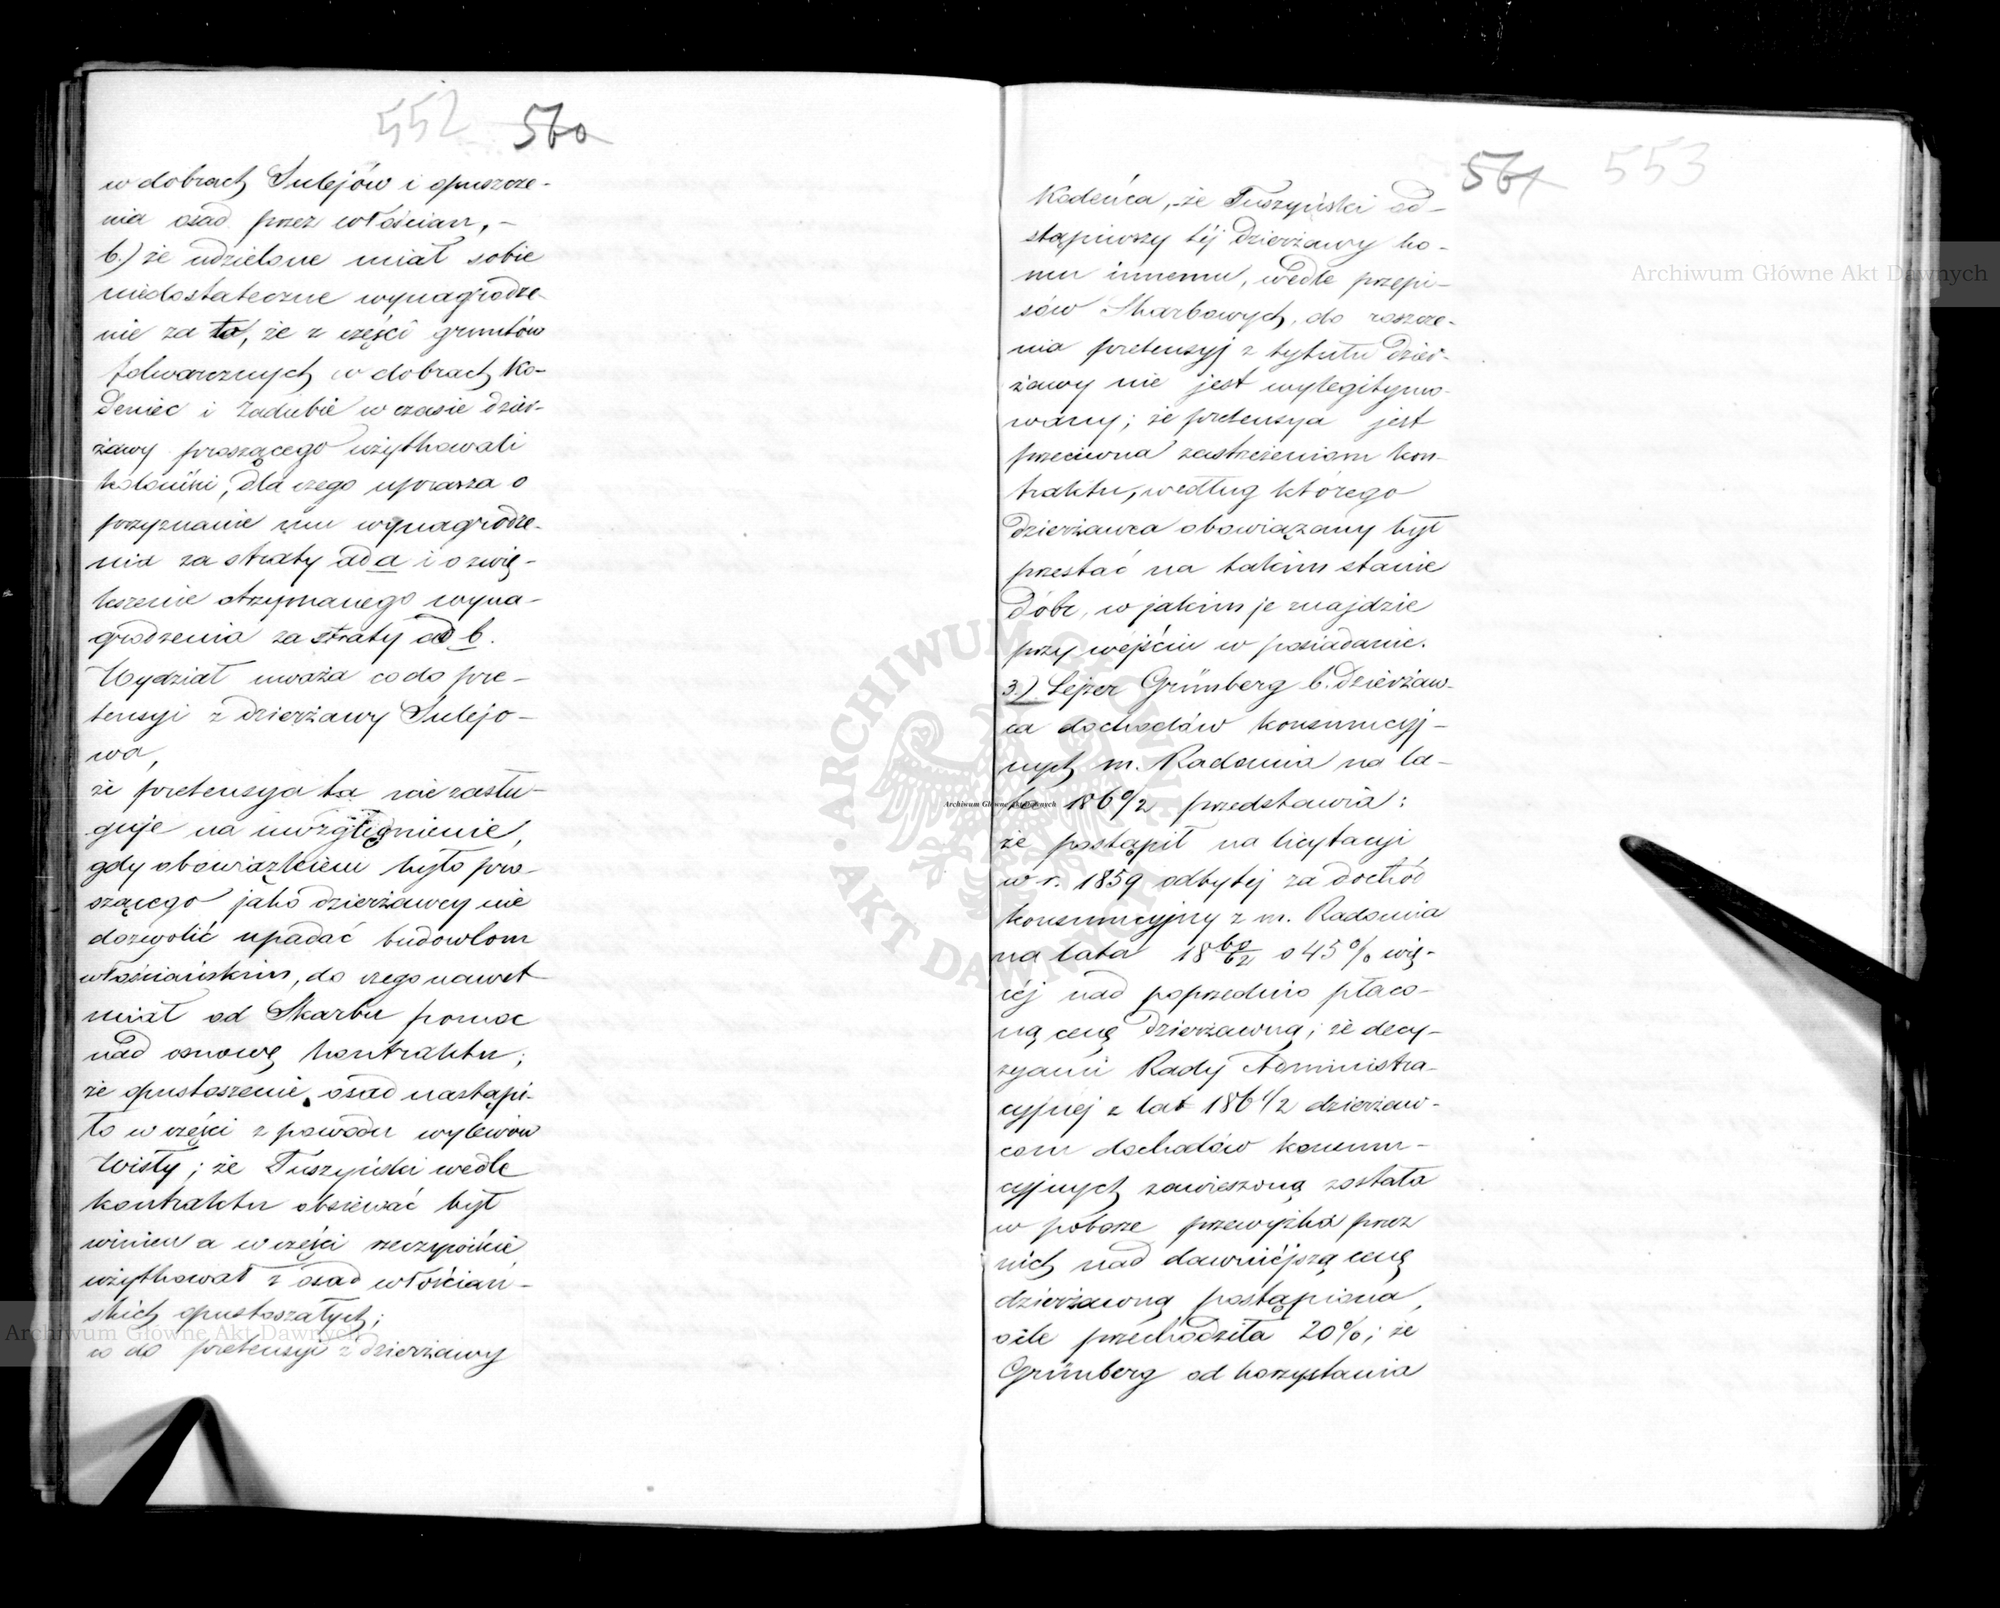 552 560
w dobrach Sulejów i opuszcze-
nia osad przez włościan, -
b.) że udzielone miał sobie
niedostateczne wynagrodze-
nie za to, że z części gruntów
folwarcznych w dobrach Ko-
deniec i Zadubie w czasie dzier-
żawy proszącego użytkowali
koloniści, dla czego uprasza o
przyznanie mu wynagrodze-
nia za straty ad a i o zwię-
kszenie otrzymanego wyna-
grodzenia za straty ad b.
Wydział uważa co do pre-
tensyi z dzierżawy Sulejo-
wa,
że pretensya ta nie zasłu-
guje na uwzględnienie,
gdy obowiązkiem było pro-
szącego jako dzierżawcy nie
dozwolić upadać budowlom
włościańskim, do czego nawet
miał od Skarbu pomoc
nad osnowę kontraktu;
że opustoszenie osad nastąpi-
ło w części z powodu wylewów
Wisły; że Tuszyński wedle
kontraktu obsiewać był
winien a w części rzeczywiście
użytkował z osad włościań-
skich opustoszałych;
co do pretensyi z dzierżawy
561 553
Kodeńca, że Tuszyński od-
stąpiwszy téj dzierżawy ko-
mu innemu, wedle przepi-
sów Skarbowych, do roszcze-
nia pretensyj z tytułu dzier-
żawy nie jest wylegitymo-
wany; że pretensya jest
przeciwna zastrzeżeniom kon-
traktu, według którego
dzierżawca obowiązany był
przestać na takim stanie
dóbr, w jakim je znajdzie
przy wejściu w posiadanie.
3.) Lejzer Grünberg b. dzierżaw-
ca dochodów konsumcyj-
nych m. Radomia na la-
ta 1860/2 przedstawia:
że postąpił na licytacyi
w r. 1859 odbytej za dochód
konsumcyjny z m. Radomia
na lata 1860/62 o 45% wię-
céj nad poprzednio płaco-
ną cenę dzierżawną; że decy-
zyami Rady Administra-
cyjnéj z lat 1861/2 dzierżaw-
com dochodów konsum-
cyjnych zawieszoną została
w poborze przewyżka przez
nich nad dawniéjszą cenę
dzierżawną postąpiona,
o ile przechodziła 20%; że
Grünberg od korzystania
Archiwum Główne Akt Dawnych
Archiwum Główne Akt Dawnych
Archiwum Główne Akt Dawnych
ARCHIWUM GŁÓWNE AKT DAWNYCH